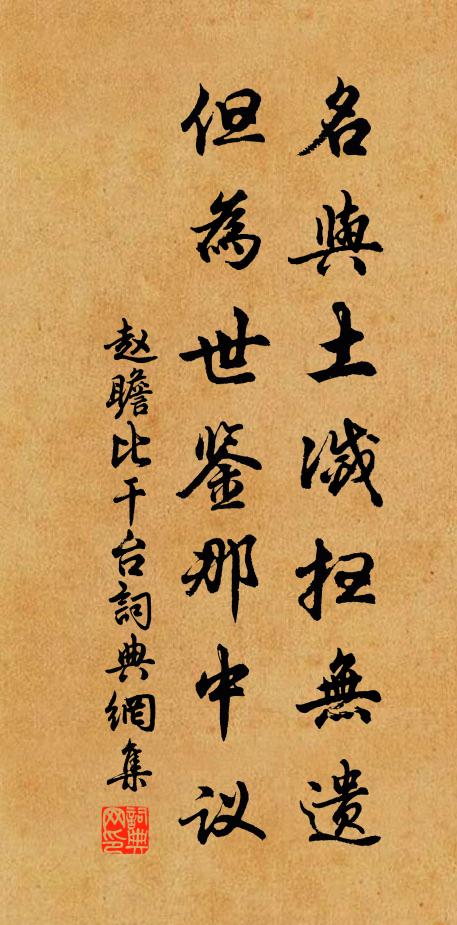 名與土滅扫無遗
但為世鉴那中议
赵瞻比干台詞典網集
詞典网印